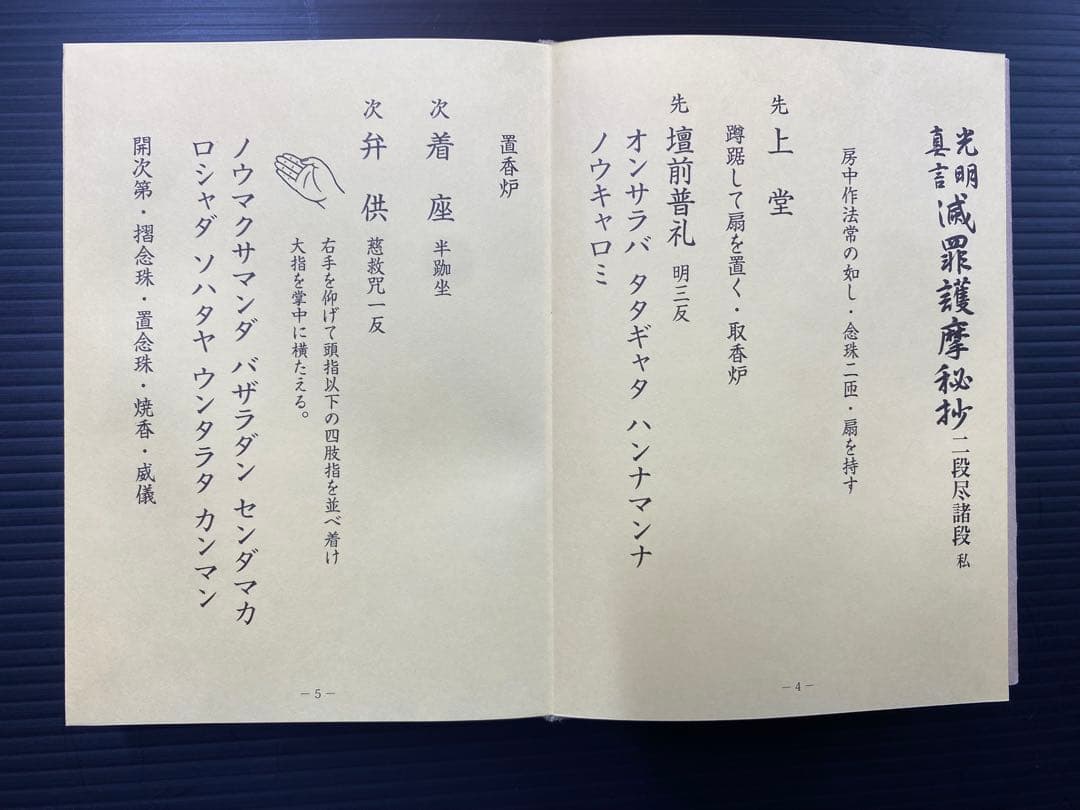 光明真言 滅罪護摩秘抄 二段尽諸段 私
房中作法常の如し・念珠二匝・扇を持す
先 上堂
蹲踞して扇を置く・取香炉
先 壇前普礼 明三反
オンサラバ タタギャタ ハンナマンナ
ノウキャロミ
－4－
置香炉
次 着座 半跏坐
次 弁供 慈救咒一反
右手を仰げて頭指以下の四肢指を並べ着け
大指を掌中に横たえる。
ノウマクサマンダ バザラダン センダマカ
ロシャダ ソハタヤ ウンタラタ カンマン
開次第・摺念珠・置念珠・焼香・威儀
－5－